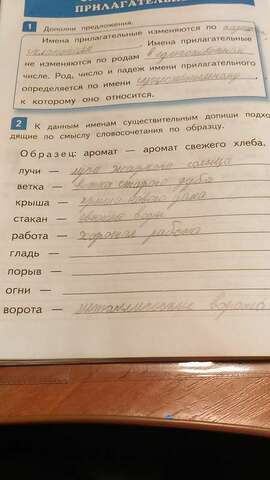 ПРИЛАГАТЕЛЬН
1 Дополни предложения.
Имена прилагательные изменяются по
. Имена прилагательные
не изменяются по родам в
числе. Род, число и падеж имени прилагательного
определяется по имени существительному,
к которому оно относится.
2 К данным именам существительным допиши подхо-
дящие по смыслу словосочетания по образцу.
Образец: аромат — аромат свежего хлеба.
лучи — луча жаркого солнца
ветка — ветка старого дуба
крыша — крыша нового дома
стакан — воды
работа — хорошая работа
гладь —
порыв —
огни —
ворота — металлические ворота